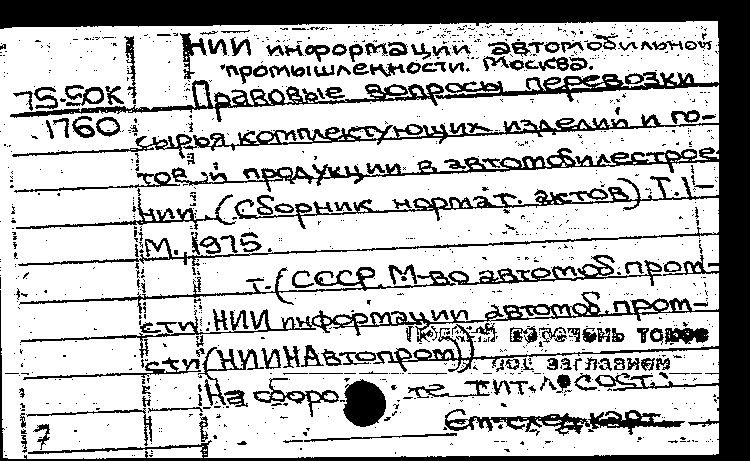 НИИ информации автомобильной
промышленности. Москва.
75-50К Правовые вопросы перевозки
1760 сырья, комплектующих изделий и го-
тов й продукции в автомобилестрое-
нии. (Сборник нормат. актов). Т.1-
М., 1975.
т. (СССР. М-во автомоб. пром-
сти. НИИ информации автомоб. пром-
Полный перечень томов
сти (НИИНАвтопром))
под заглавием
На оборо те тит. л. сост.:
См. след. карт.
7